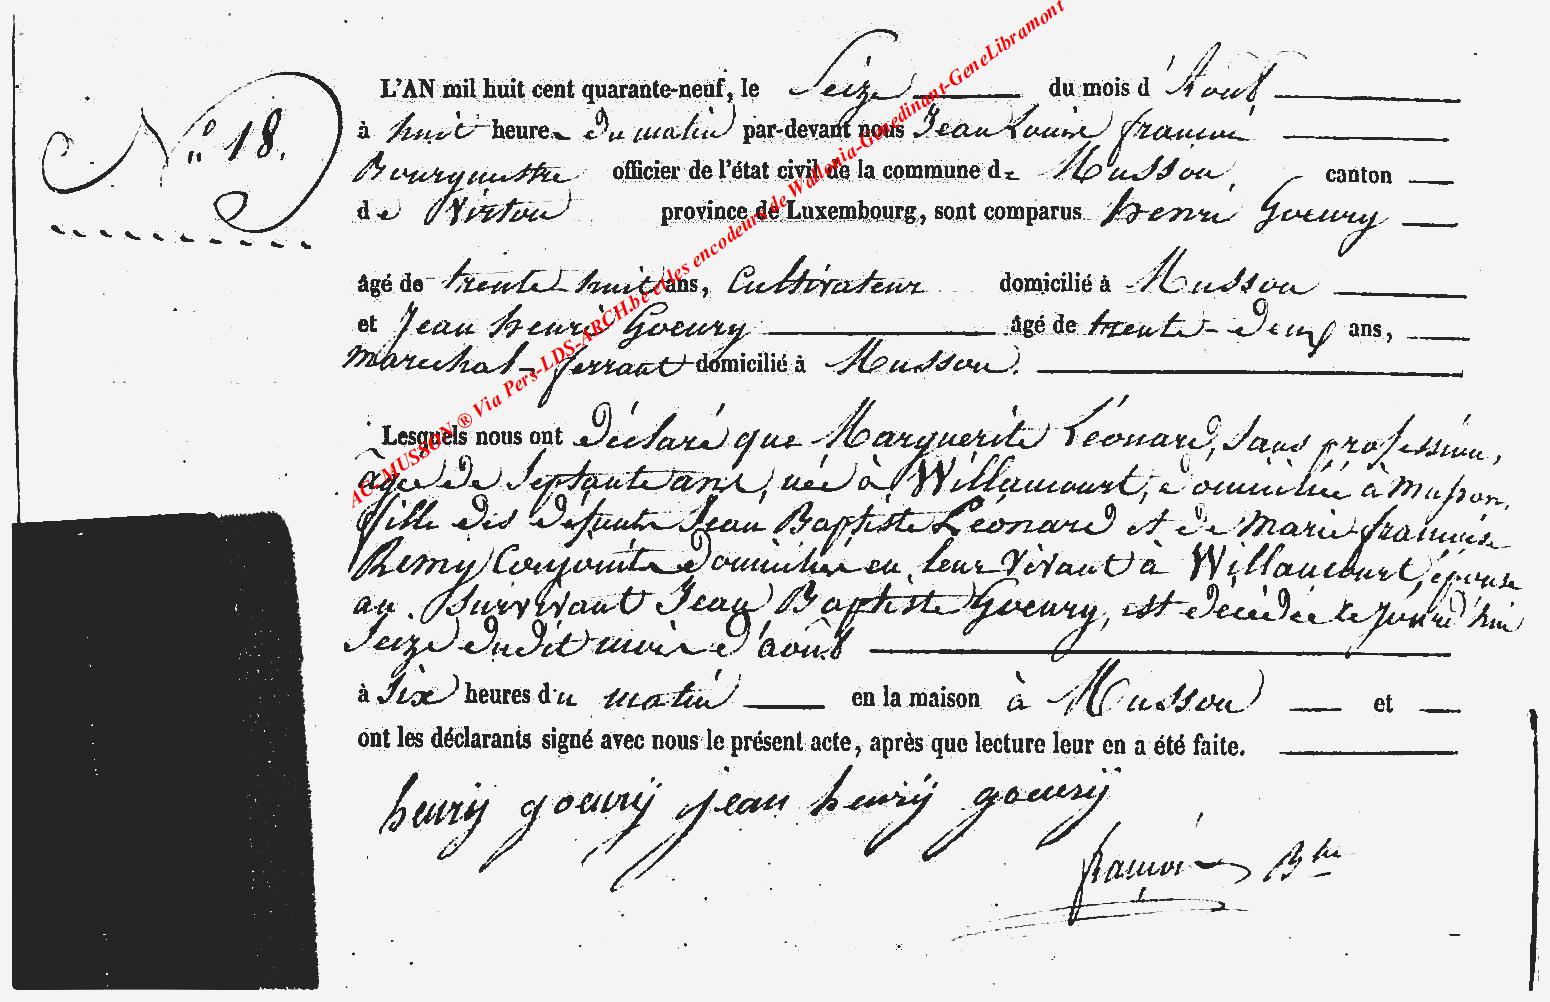 N.° 18.
L'AN mil huit cent quarante-neuf, le Seize du mois d'Août
à huit heures du matin par-devant nous Jean Louis françois
Bourgmestre officier de l'état civil de la commune de Musson, canton
de Virton province de Luxembourg, sont comparus henri Goeury
âgé de trente-huit ans, Cultivateur domicilié à Musson
et Jean henri Goeury âgé de trente-deux ans,
maréchal-ferrant domicilié à Musson.
Lesquels nous ont déclaré que Marguerite Léonard, sans profession,
âgée de Septante ans, née à Willancourt, domiciliée à Musson,
fille des défunts Jean Baptiste Léonard et de Marie françoise
Remy Conjoints domiciliés en leur vivant à Willancourt, épouse
au Survivant Jean Baptiste Goeury, est décédée le jourd'hui
Seize dudit mois d'août
à Six heures du matin en la maison à Musson et
ont les déclarants signé avec nous le présent acte, après que lecture leur en a été faite.
henry goeury jean henry goeury
françois B.tre
AC-MUSSON ® Via Pers-LDS-ARCH.be et les encodeurs de Wallonia-Genedinant-GeneLibramont